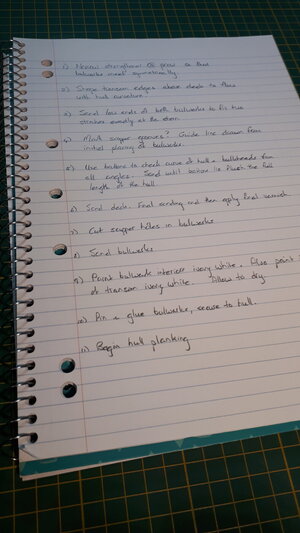 1) Narrow sternpost at prow so that
bulwarks meet symmetrically.
2) Shape transom edges above sheds to flow
with hull curvature.
3) Sand fore ends of both bulwarks to fit two
strakes exactly at the stem.
4) Mark scupper openings? Guide line drawn from
initial placing of bulwarks.
5) Use battens to check curve of hull & bulkheads from
all angles. Sand until batten lie flush the full
length of the hull.
6) Sand deck. Final sanding and then apply final varnish
7) Cut scupper holes in bulwarks
8) Sand bulwarks
9) Paint bulwark interiors ivory white. Also paint
transom ivory white. Allow to dry.
10) Pin & glue bulwarks, secure to hull.
11) Begin hull planking